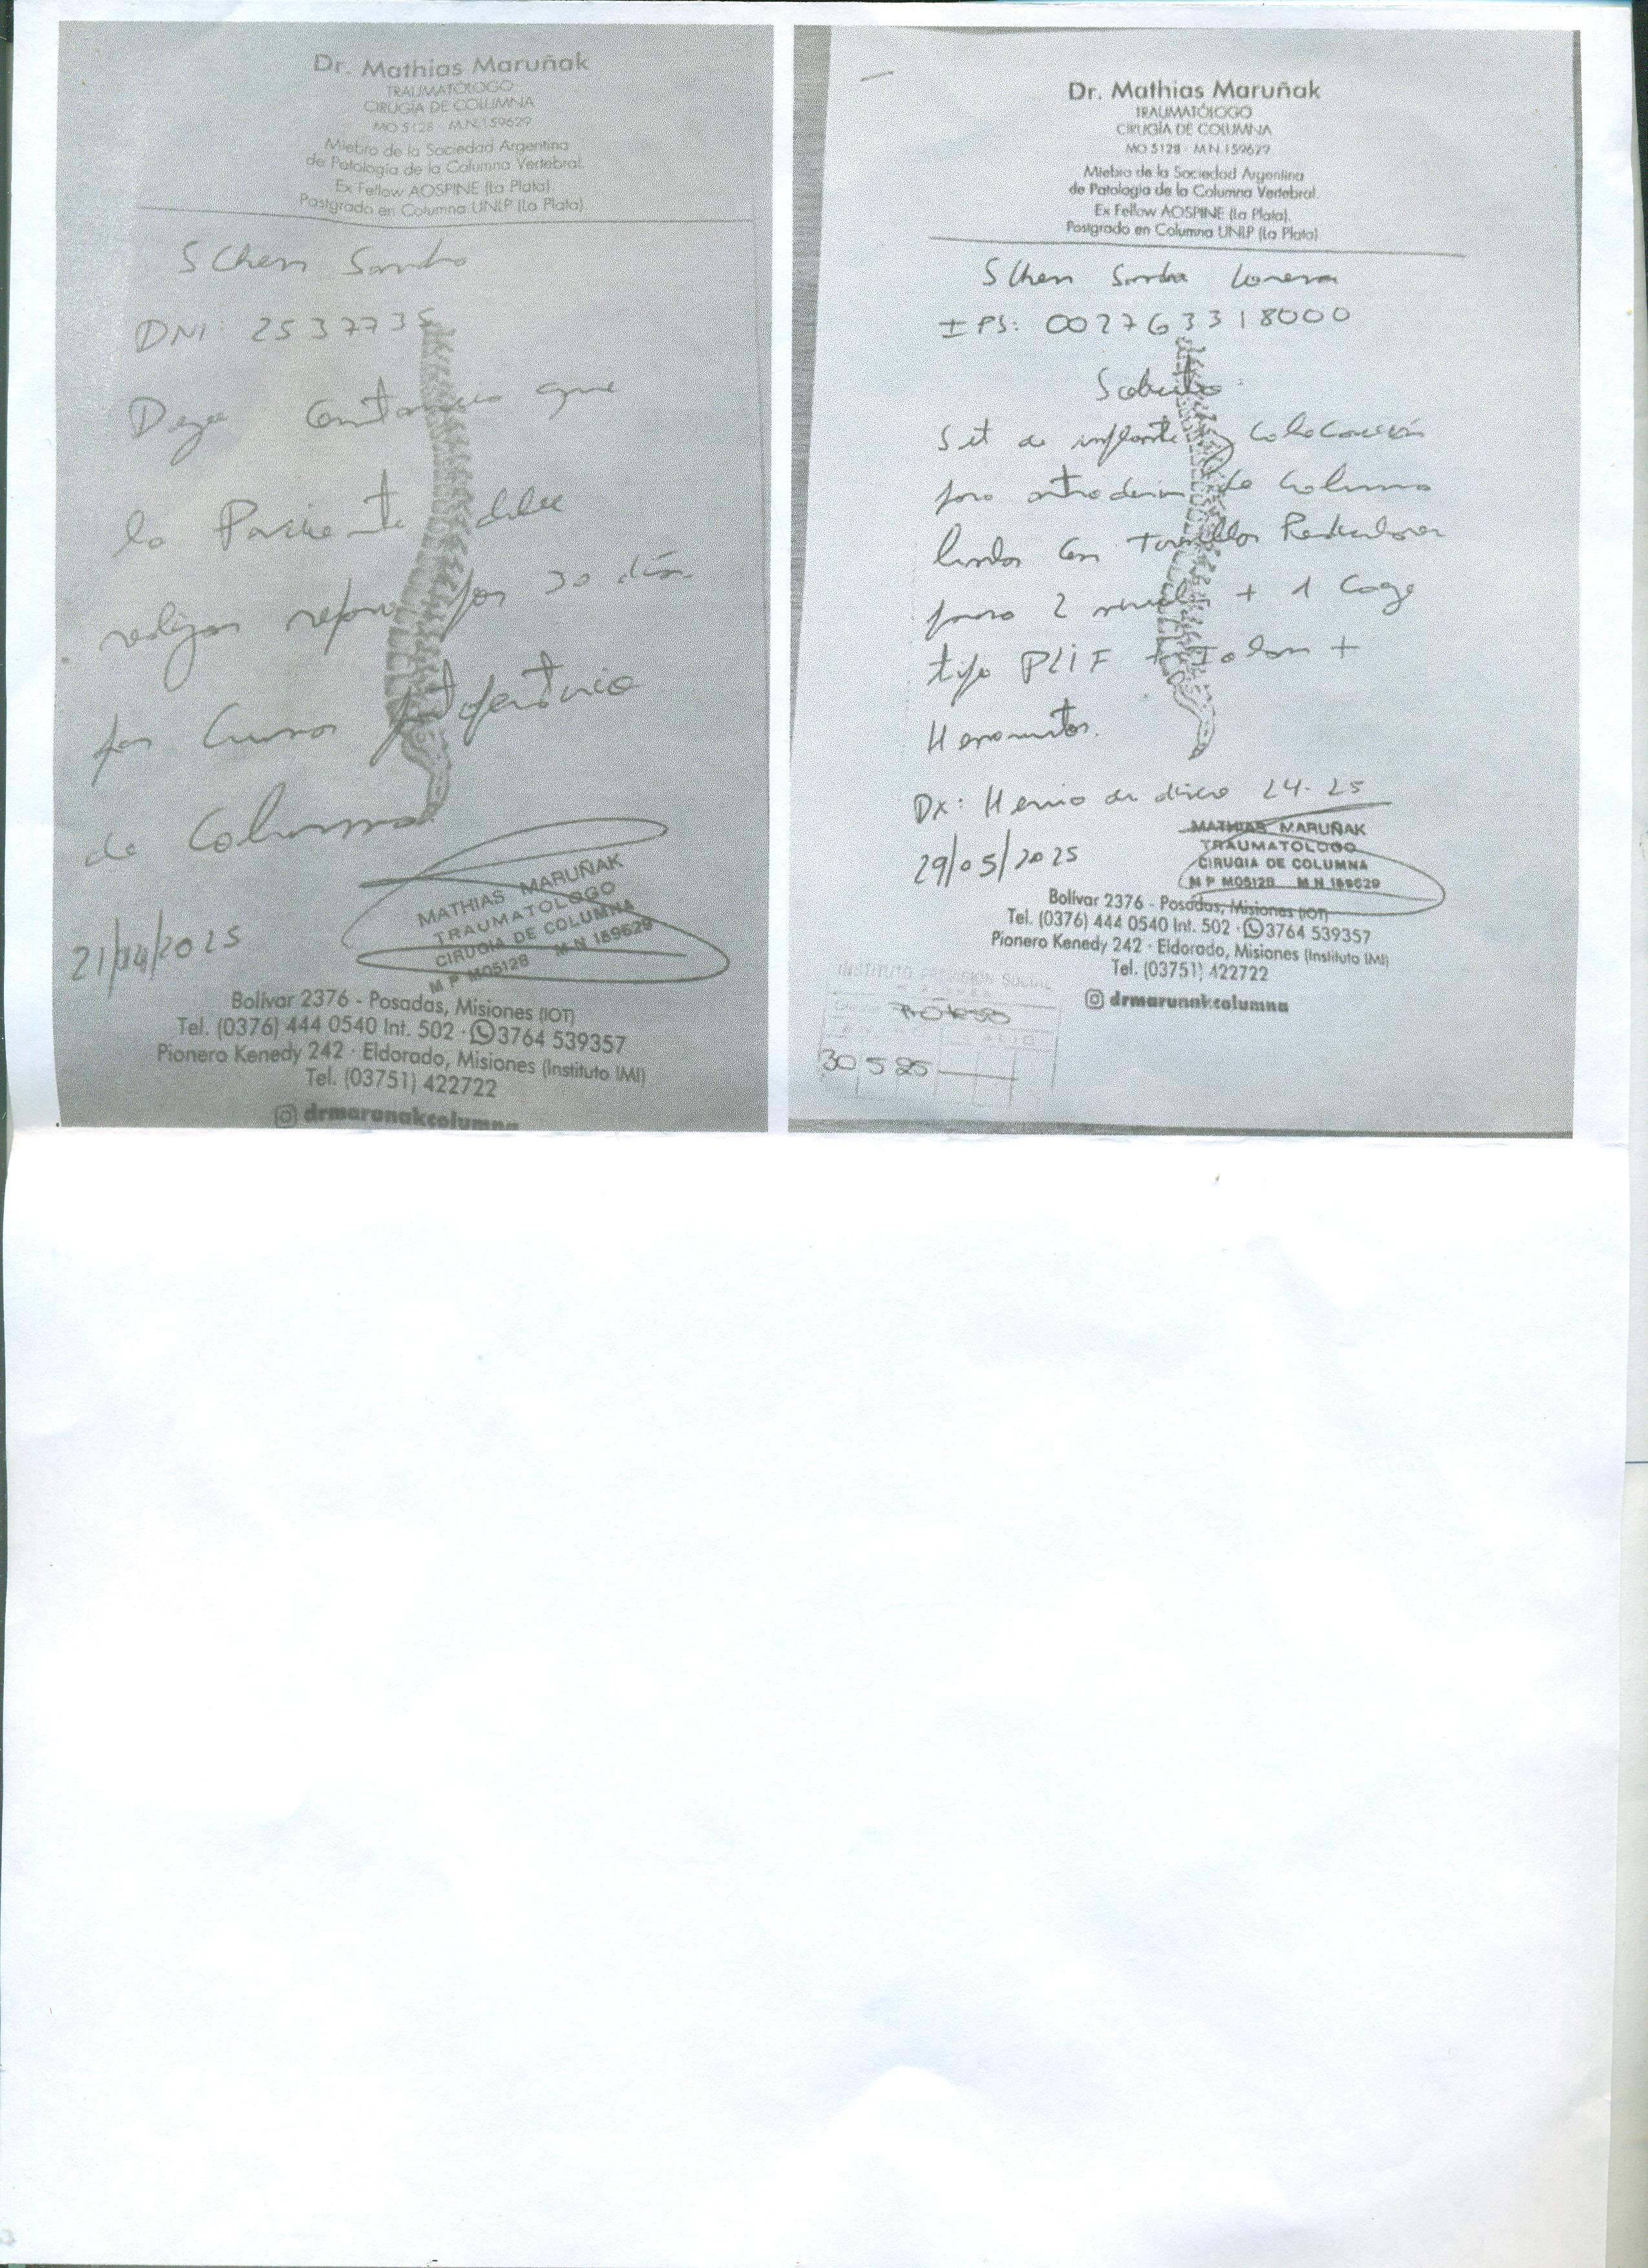 Dr. Mathias Maruñak
TRAUMATÓLOGO
CIRUGÍA DE COLUMNA
MO 5128 - M.N. 159629
Miebro de la Sociedad Argentina
de Patología de la Columna Vertebral.
Ex Fellow AOSPINE (La Plata).
Postgrado en Columna UNLP (La Plata)
SChen Sandra
DNI: 2537735
Dejo constancia que
la Paciente debe
realizar reposo por 30 días
por Cursar postoperatorio
de Columna
21/04/2025
MATHIAS MARUÑAK
TRAUMATOLOGO
CIRUGIA DE COLUMNA
M P M05128 M N 159629
Bolívar 2376 - Posadas, Misiones (IOT)
Tel. (0376) 444 0540 Int. 502 · 3764 539357
Pionero Kenedy 242 · Eldorado, Misiones (Instituto IMI)
Tel. (03751) 422722
drmarunakcolumna
Dr. Mathias Maruñak
TRAUMATÓLOGO
CIRUGÍA DE COLUMNA
MO 5128 - M.N. 159629
Miebro de la Sociedad Argentina
de Patología de la Columna Vertebral.
Ex Fellow AOSPINE (La Plata).
Postgrado en Columna UNLP (La Plata)
SChen Sandra Lorena
IPS: 002763318000
Solicito:
Set de implante y colocación
para artrodesis de columna
lumbar con Tornillos Pediculares
para 2 niveles + 1 Cage
tipo PLIF +
Herramientas.
Dx: Hernia de disco L4-L5
29/05/2025
MATHIAS MARUÑAK
TRAUMATOLOGO
CIRUGIA DE COLUMNA
M P M05128 M N 159629
Bolívar 2376 - Posadas, Misiones (IOT)
Tel. (0376) 444 0540 Int. 502 · 3764 539357
Pionero Kenedy 242 · Eldorado, Misiones (Instituto IMI)
Tel. (03751) 422722
drmarunakcolumna
INSTITUTO PREVISIÓN SOCIAL
30 5 25